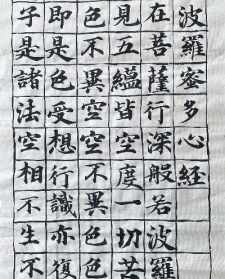 波羅蜜多心經
在菩薩行深般若波羅
見五縕皆空度一切苦
色不異空空不異色色
即是色受想行識亦復
子是諸法空相不生不